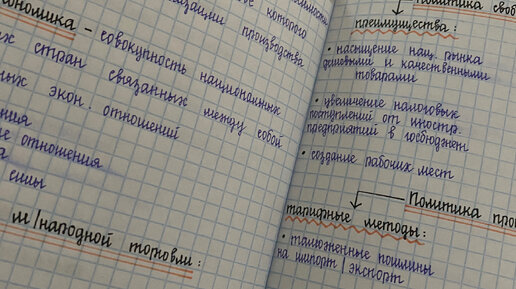 которого
зации производства
экономика - совокупность национальных
стран связанных между собой
экон. отношений
отношения
м/народной торговли:
Политика своб
преимущества:
• насыщение нац. рынка
дешёвыми и качественными
товарами
• увеличение налоговых
поступлений от иностр.
предприятий в госбюджет
• создание рабочих мест
Политика про
тарифные методы:
• таможенные пошлины
на импорт | экспорт